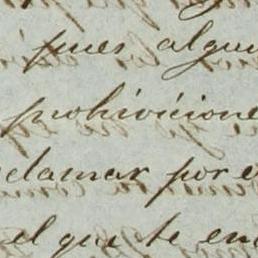 pues algun
prohivicione
clamar por e
el que te en